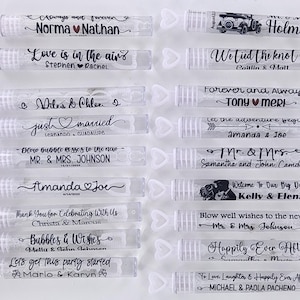 Always and Forever
Norma Nathan
Love is in the air
Stephen Rachel
Miles & Chloe
just married
Blow bubble kisses to the new
MR. & MRS. JOHNSON
Amanda Joe
Thank You for Celebrating With Us
Christa & Marcus
Bubbles & Wishes
Molly & John Johnson
Let's get this party started
Mario & Karyn
Holm
We tied the knot
Caitlin & Matt
Forever and Always
TONY MERI
let the adventure begin
Amanda & Joe
Mr. & Mrs.
Samantha and John
Welcome To Our Big Day
Kelly & Elen
Blow well wishes to the new
Mr. & Mrs. Johnson
Happily Ever Aft
To Love, Laughter & Happily Ever Af
MICHAEL & PAOLA PACHENO